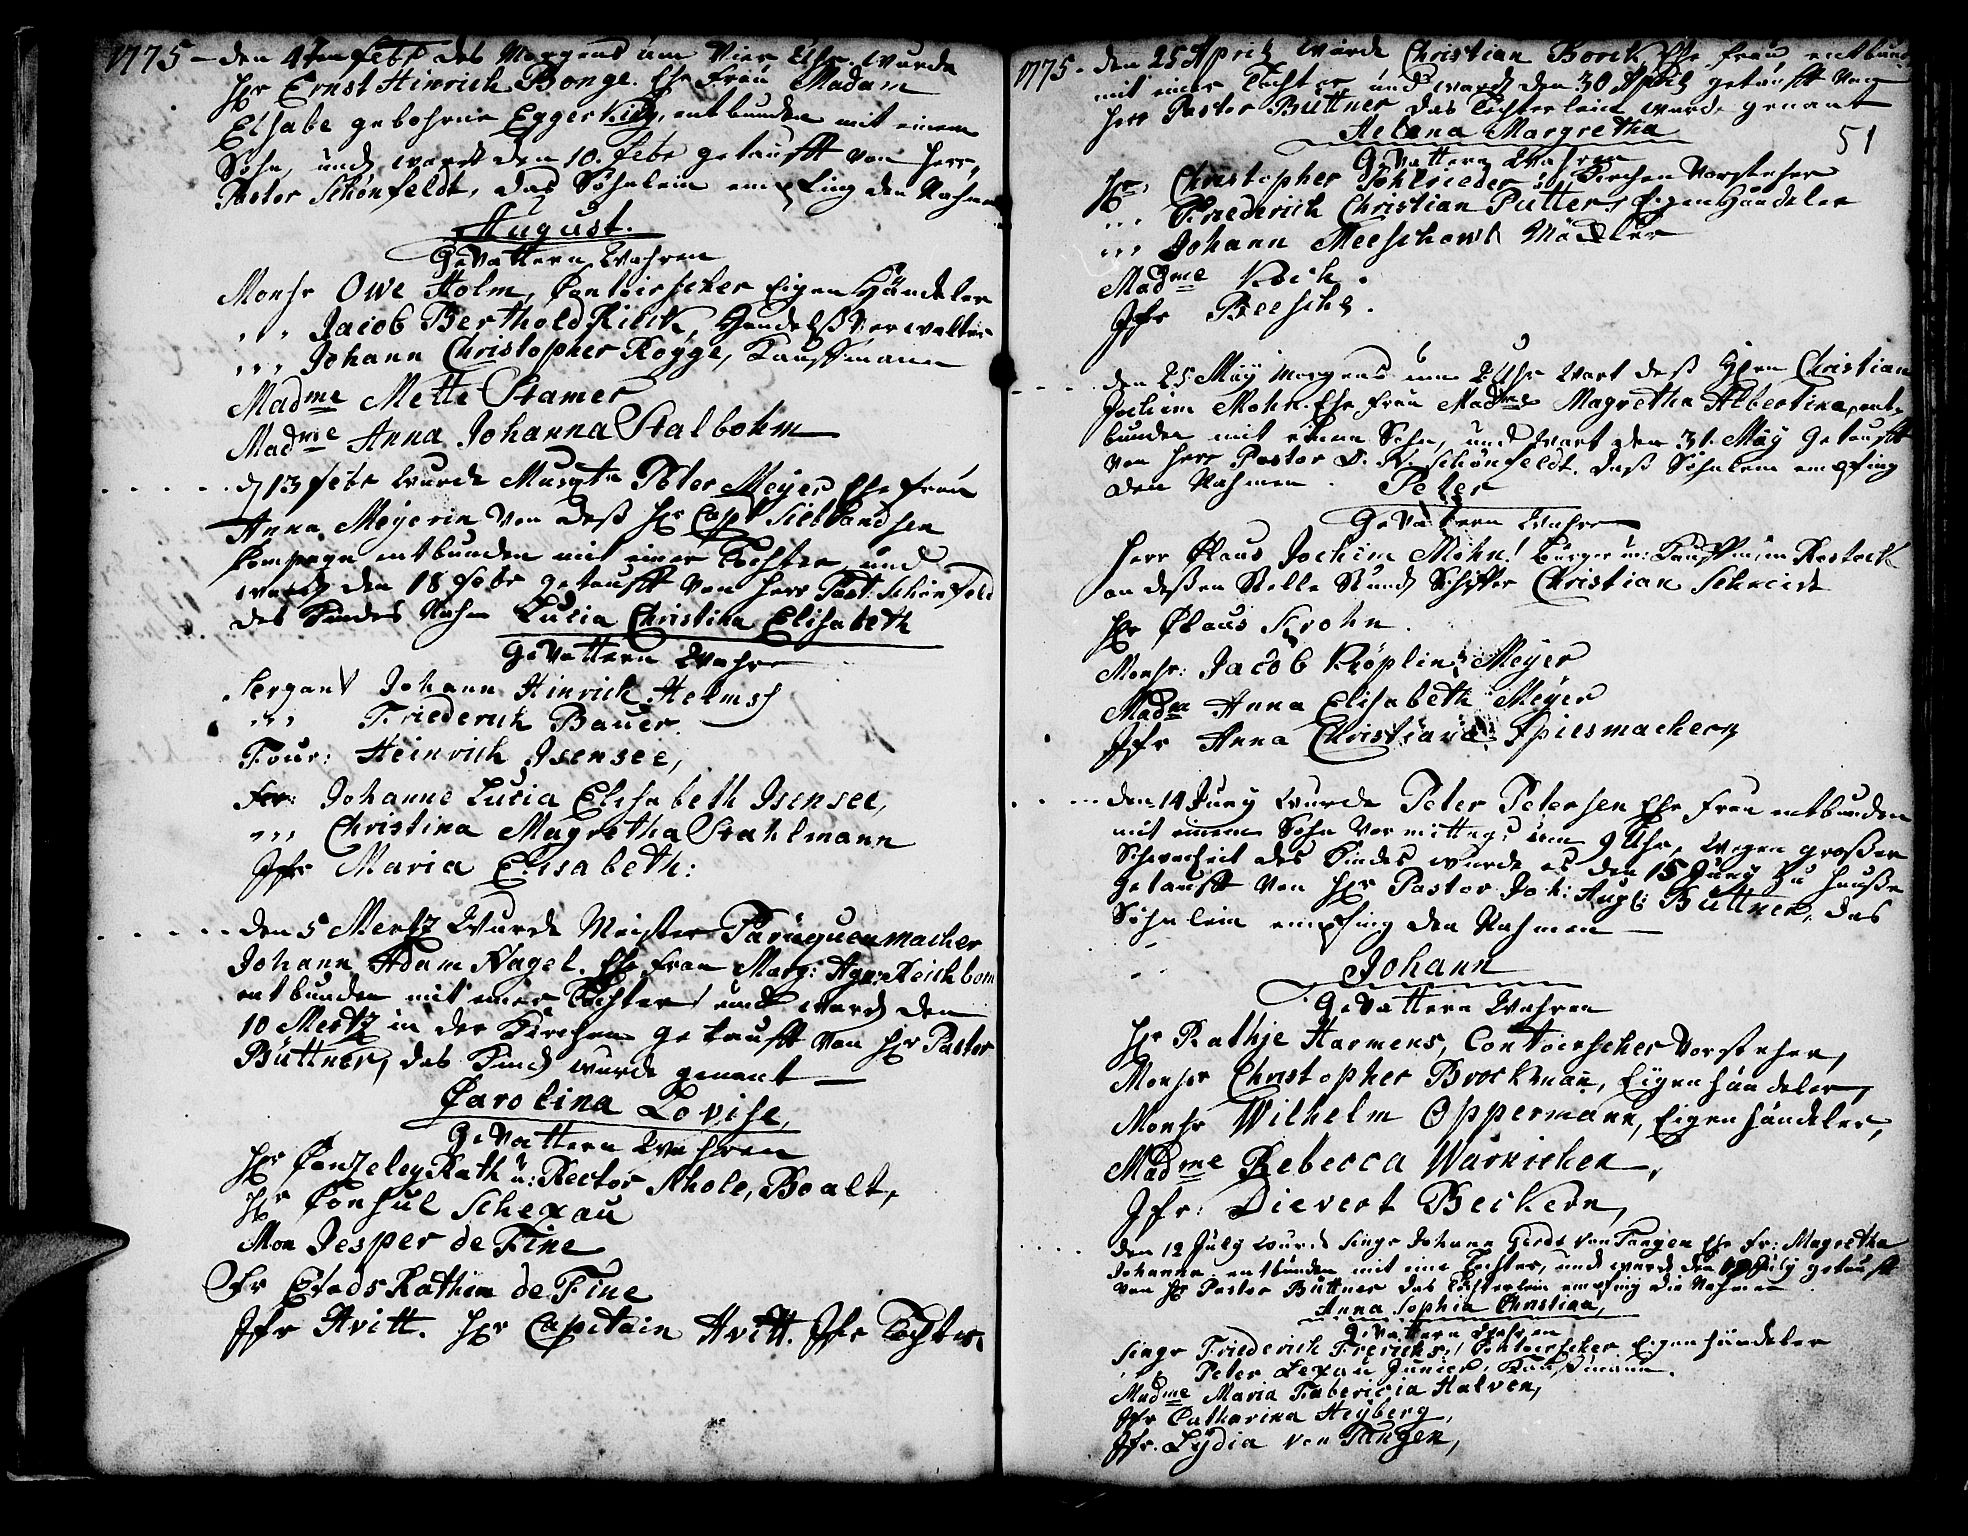 1775 – den 4ten Febr des Morgens um Vier Uhr wurde
Hr Ernst Hinrich Bonge. Ehe Frau Madam
Elsabe gebohrne Eggerking, entbunden mit einem
Sohn, und ward den 10. Febr getaufft von Herr,
Pastor Schönfeldt, das Söhnlein empfing den Nahmen
August.
Gevattern Wahren
Monsr Owe Holm, Contoirscher Eigen Händeler
,, ,, Jacob Berthold Kilik, Handelß Verwalter
,, ,, Johann Christopher Rogge, Kauffmann
Madme Mette Kramer
Madme Anna Johanna Stalbohm
d 13 Febr Wurde Musqtr Peter Meyer Ehe Frau
Anna Meyerin von deß Hr Capt Sieblandsen
Compagn entbunden mit einer Tochter und
ward den 18 Febr getaufft von Herr Past: Schönfeld
des Kindes Nahm Lucia Christina Elisabeth
Gevattern Wahren
Sergant Johann Hinrich Helms
,, ,, Friederich Bauer.
Four: Heinrich Isensee,
Fr: Johanne Lucia Elisabeth Isensee,
,, ,, Christina Magretha Stahlmann
Jfr Maria Elisabeth:
Den 5 Mertz Wurde Meister Parüquenmacher
Johann Adam Nagel. Ehe Frau Marg: Agn: Reichborn
entbunden mit einer Tochter und ward den
10 Mertz in der Kirchen getaufft von Hr Pastor
Büttner, das Kind wurde genent —
Carolina Lovise,
Gevattern Wahren
Hr Cantzeley Rath u: Rector Schole, Boalt,
Hr Consul Schexau
Mon Jesper de Fine
Fr Etads Räthin de Fine
Jfr Hvitt. Hr Capitain Hvitt. Jfr Tochter
1775 – den 25 April wurde Christian Borck Ehe Frau entbunden
mit einer Tochter und ward den 30 April getaufft von
Herr Pastor Büttner das Töchterlein wurde genant
Helena Margretha
51
Gevattern Wahren
Hr Christopher Kirchen Vorsteher
,, ,, Friederich Christian Pütter, Eigen Händeler
,, ,, Johann Meeschowt Mäckler
Madme Kock.
Jfr Beesche.
Den 25 May Morgens um 2 Uhr Wart deß Hren Christian
Jochim Mohn. Ehe Frau Madme Magretha Albertina, ent-
bunden mit einem Sohn, und Wart den 31. May getaufft
von Herr Pastor Schönfeldt. Daß Söhnlein empfing
den Nahmen. Peter
Gevattern Wahren
Herr Claus Jochim Mohn! Bürger u: Kauffm: in Rostock
an deßen Stelle Stund Schiffer Christian Schmidt
Hr Claus Krohn.
Monsr: Jacob Köplin Meyer
Madm Anna Elisabeth Meyer
Jfr Anna Christiana Spiesmachern
den 14 Juny Wurde Peter Petersen Ehe Frau entbunden
mit einem Sohn Vormittags um 9 Uhr, Wegen großer
Schwacheit des Kindes wurde es den 15 Juny zu Hauße
getaufft von Hr Pastor Joh: Augt: Büttner, das
Söhnlein empfing den Nahmen —
Johann
Gevattern Wahren
Hr Rathje Harmens, Contoirscher Vorsteher,
Monsr Christopher Brockmann, Eigenhändeler,
Monsr Wilhelm Oppermann, Eigenhändeler,
Madme Rebecca Warnichen,
Jfr: Dievert Beckern,
Den 12 July Wurd Singr Johann Gerdt von Tangen Ehe Fr: Magretha
Johanna entbunden mit eine Tochter, und wurd den July getaufft
von Hr Pastor Büttner das Töchterlein empfing die Nahmen
Anna Sophia Christina,
Gevattern Wahren
Singr Friederich Frerichs, Contoirscher Eigenhändeler
,, Peter Lexau Junior, Kauffmann.
Madme Maria Fabericia Halven,
Jfr Catharina Heyberg,
Jfr: Lydia von Tangen,